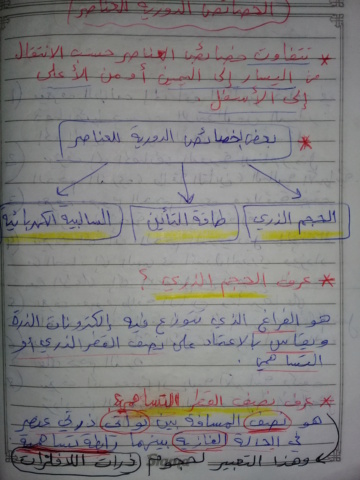 الخصائص الدورية العناصر
* تتفاوت خصائص العناصر حسب الانتقال
من اليسار إلى اليمين أو من الأعلى
إلى الأسفل
* بعض خصائص الدورية العناصر
الحجم الذري
طاقة التأين
السالبية الكهربائية
* عرف الحجم الذري ؟
هو الفراغ الذي تتوزع فيه إلكترونات الذرة
ويقاس بالاعتماد على نصف القطر الذري أو
التساهمي.
* عرف نصف القطر التساهمي؟
هو نصف المسافة بين نواتي ذرتي عنصر
في الحالة الغازية بينهما رابطة تساهمية
وهذا التعبير لحجوم ذرات اللافلزات